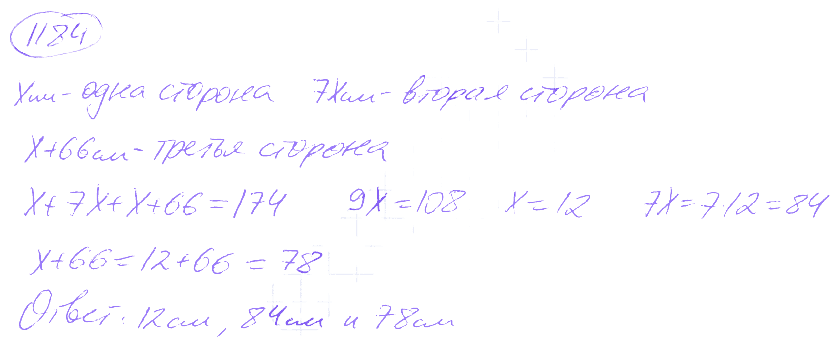 1184
Xсм - одна сторона 7Xсм - вторая сторона
X+66см - третья сторона
X+7X+X+66=174 9X=108 X=12 7X=7·12=84
X+66=12+66=78
Ответ: 12см, 84см и 78см